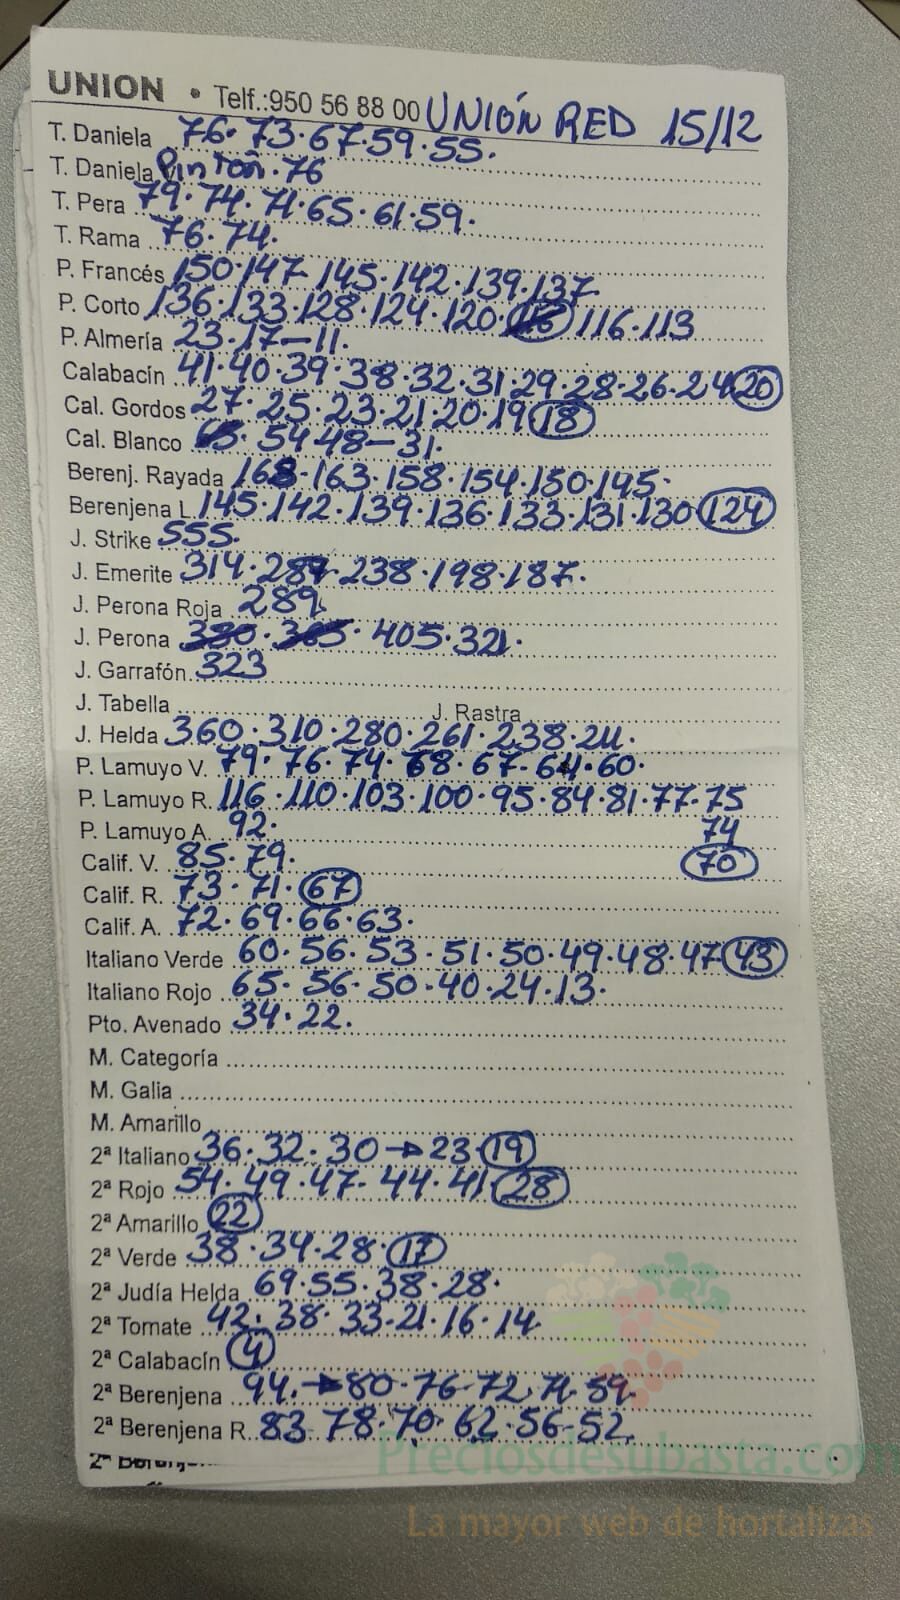 UNION • Telf.:950 56 88 00 UNIÓN RED 15/12
T. Daniela 76·73·67·59·55·
T. Daniela Pintón·76
T. Pera 79·74·71·65·61·59·
T. Rama 76·74·
P. Francés 150·147·145·142·139·137·
P. Corto 136·133·128·124·120· 116·113
P. Almería 23·17–11·
Calabacín 41·40·39·38·32·31·29·28·26·24 20
Cal. Gordos 27·25·23·21·20·19 18
Cal. Blanco 54 48–31·
Berenj. Rayada 168·163·158·154·150·145·
Berenjena L. 145·142·139·136·133·131·130 124
J. Strike 555·
J. Emerite 314·287·238·198·187·
J. Perona Roja 289
J. Perona 380·365· 405·321·
J. Garrafón 323
J. Tabella J. Rastra
J. Helda 360·310·280·261·238·211·
P. Lamuyo V. 79·76·74·68·67·64·60·
P. Lamuyo R. 116·110·103·100·95·84·81·77·75
74
P. Lamuyo A. 92·
70
Calif. V. 85·79·
Calif. R. 73·71· 67
Calif. A. 72·69·66·63·
Italiano Verde 60·56·53·51·50·49·48·47 43
Italiano Rojo 65·56·50·40·24·13·
Pto. Avenado 34·22·
M. Categoría
M. Galia
M. Amarillo
2ª Italiano 36·32·30→23· 19
2ª Rojo 54·49·47·44·41 28
2ª Amarillo 22
2ª Verde 38·34·28· 17
2ª Judía Helda 69·55·38·28·
2ª Tomate 42·38·33·21·16·14
2ª Calabacín 4
2ª Berenjena 94·→80·76·72·71·59
2ª Berenjena R. 83·78·70·62·56·52
Preciosdesubasta.com
La mayor web de hortalizas